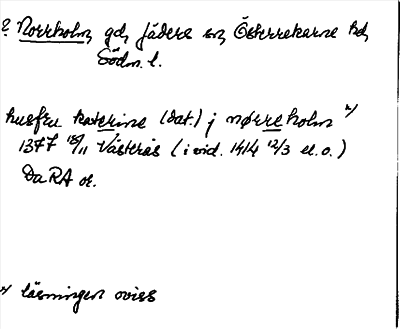 ? Norrholm, gd, Fådere sn, Österrekarne hd,
Södm. l.
husfru katerine (dat.) j nørreholm x)
1377 18/11 Västerås (i vid. 1414 12/3 el. o.)
DaRA or.
x) läsningen oviss